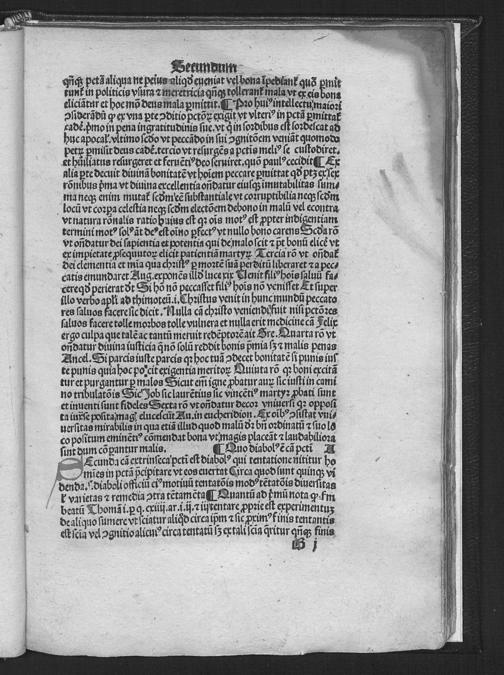 Secundum
qñq; pctā aliqua ne peius aliqd eueniat vel bona īpediant̉ quō ꝑmit
tunt̉ in politicis vsura ⁊ meretricia qñq; tollerant̉ mala vt ex eis bona
eliciātur et hoc mō deus mala ꝑmittit. ¶ Pro huiꝰ intellectu maiori
ꝯsiderādū qꝫ ex vna ꝑte ꝯditio pctōꝝ exigit vt vlteriꝰ in pctā ꝑmittat̉
cadē. pmo in pena ingratitudinis sue. vt q in sordibus est sordescat ad
huc apocal. vltimo scdo vt peccādo in sui ꝯgnitōem veniāt quomodo
petrꝫ ꝑmisit deus cadē. tercio vt resurgēs a pctis meliꝰ se custodiret.
et hūiliatus resurgeret et feruētiꝰ deo seruiret. quō paulꝰ cecidit ¶ Ex
alia ꝑte decuit diuinā bonitatē vt hoiem peccare ꝑmittat
rōnibus pma vt diuina excellentia oñdatur eiusqꝫ imutabilitas sum
ma neqꝫ enim mutat̉ scdm eē substantiale vt corruptibilia neqꝫ scdm
locū vt corpa celestia neqꝫ scdm electōem de bono in malū vel econtra
vt natura rōnalis ratio
termini motꝰ solꝰ aūt deꝰ est oīno ꝑfectꝰ vt nullo bono carens Scda rō
vt oñdatur dei sapientia et potentia qui de malo scit ⁊ pōt bonū elicē vt
ex impietate ꝑsequutoꝝ elicit patientiā martyꝝ Tercia rō vt oñdat̉
dei clementia et mīa qua christꝰ ꝑ mortē suā ꝑditū liberaret ⁊ a pec
catis emundaret Aug. exponēs illd luce xix Uenit filiꝰ hoīs saluū fa
cere qd perierat dt Si hō nō peccasset filiꝰ hoīs nō venisset Et super
illo verbo apli ad thimoteū. i. Christus venit in hunc mundū peccato
res saluos facere sic dicit. Nulla cā christo veniendi fuit nisi pctōres
saluos facere tolle morbos tolle vulnera et nulla erit medicine cā Felix
ergo culpa que talē ac tantū meruit redēptorē ait Gre. Quarta rō vt
oñdatur diuina iusticia q nō solū reddit bonis pmia sꝫ ⁊ malis penas
Ancel. Si parcis iuste parcis qꝛ hoc tuā ꝯdecet bonitatē si punis ius
te punis quia hoc poscit exigentia meritoꝝ Quinta rō qꝛ boni excitā
tur et purgantur ꝑ malos Sicut em igne ꝓbatur auꝝ sic iusti in cami
no tribulatōis Sic Job sic laurētius sic vincētiꝰ martyꝝ ꝓbati sunt
et inuenti sunt fideles Sexta rō vt oñdatur decor vniuersi qꝛ opposi
ta iuxta se posita magꝭ elucescūt Au. in encheridion. Ex oībꝰ ꝯsistat vni
uersitas mirabilis in qua etiā illud quod malū dr bñ ordinatū ⁊ suo lo
co positum eminētiꝰ cōmendat bona vt magis placeāt ⁊ laudabiliora
sint dum cōparantur malis. ¶ Quo diabolꝰ ē cā pcti A
Secunda cā extrinseca pcti est diabolꝰ qui tentatione nititur ho
mies in pctā ꝑcipitare vt eos euertat Circa quod sunt quinqꝫ vi
denda. s. diaboli officiū eiꝰ motiuū tentatōis modꝰ tētatōis diuersitas
⁊ varietas ⁊ remedia ꝯtra tētamēta ¶ Quantū ad pmū nota qꝫ sm
beatū Thomā i. p. q. cxiiij. ar. i. ij. ⁊ iij. tentare ꝓprie est experimentuꝫ
de aliquo sumere vt sciatur aliqd circa ipm ⁊ sic ꝓximꝰ finis tentantis
est scīa vel ꝯgnitio alicuiꝰ circa tentatū sꝫ ex tali scīa qritur qñqꝫ finis
B j